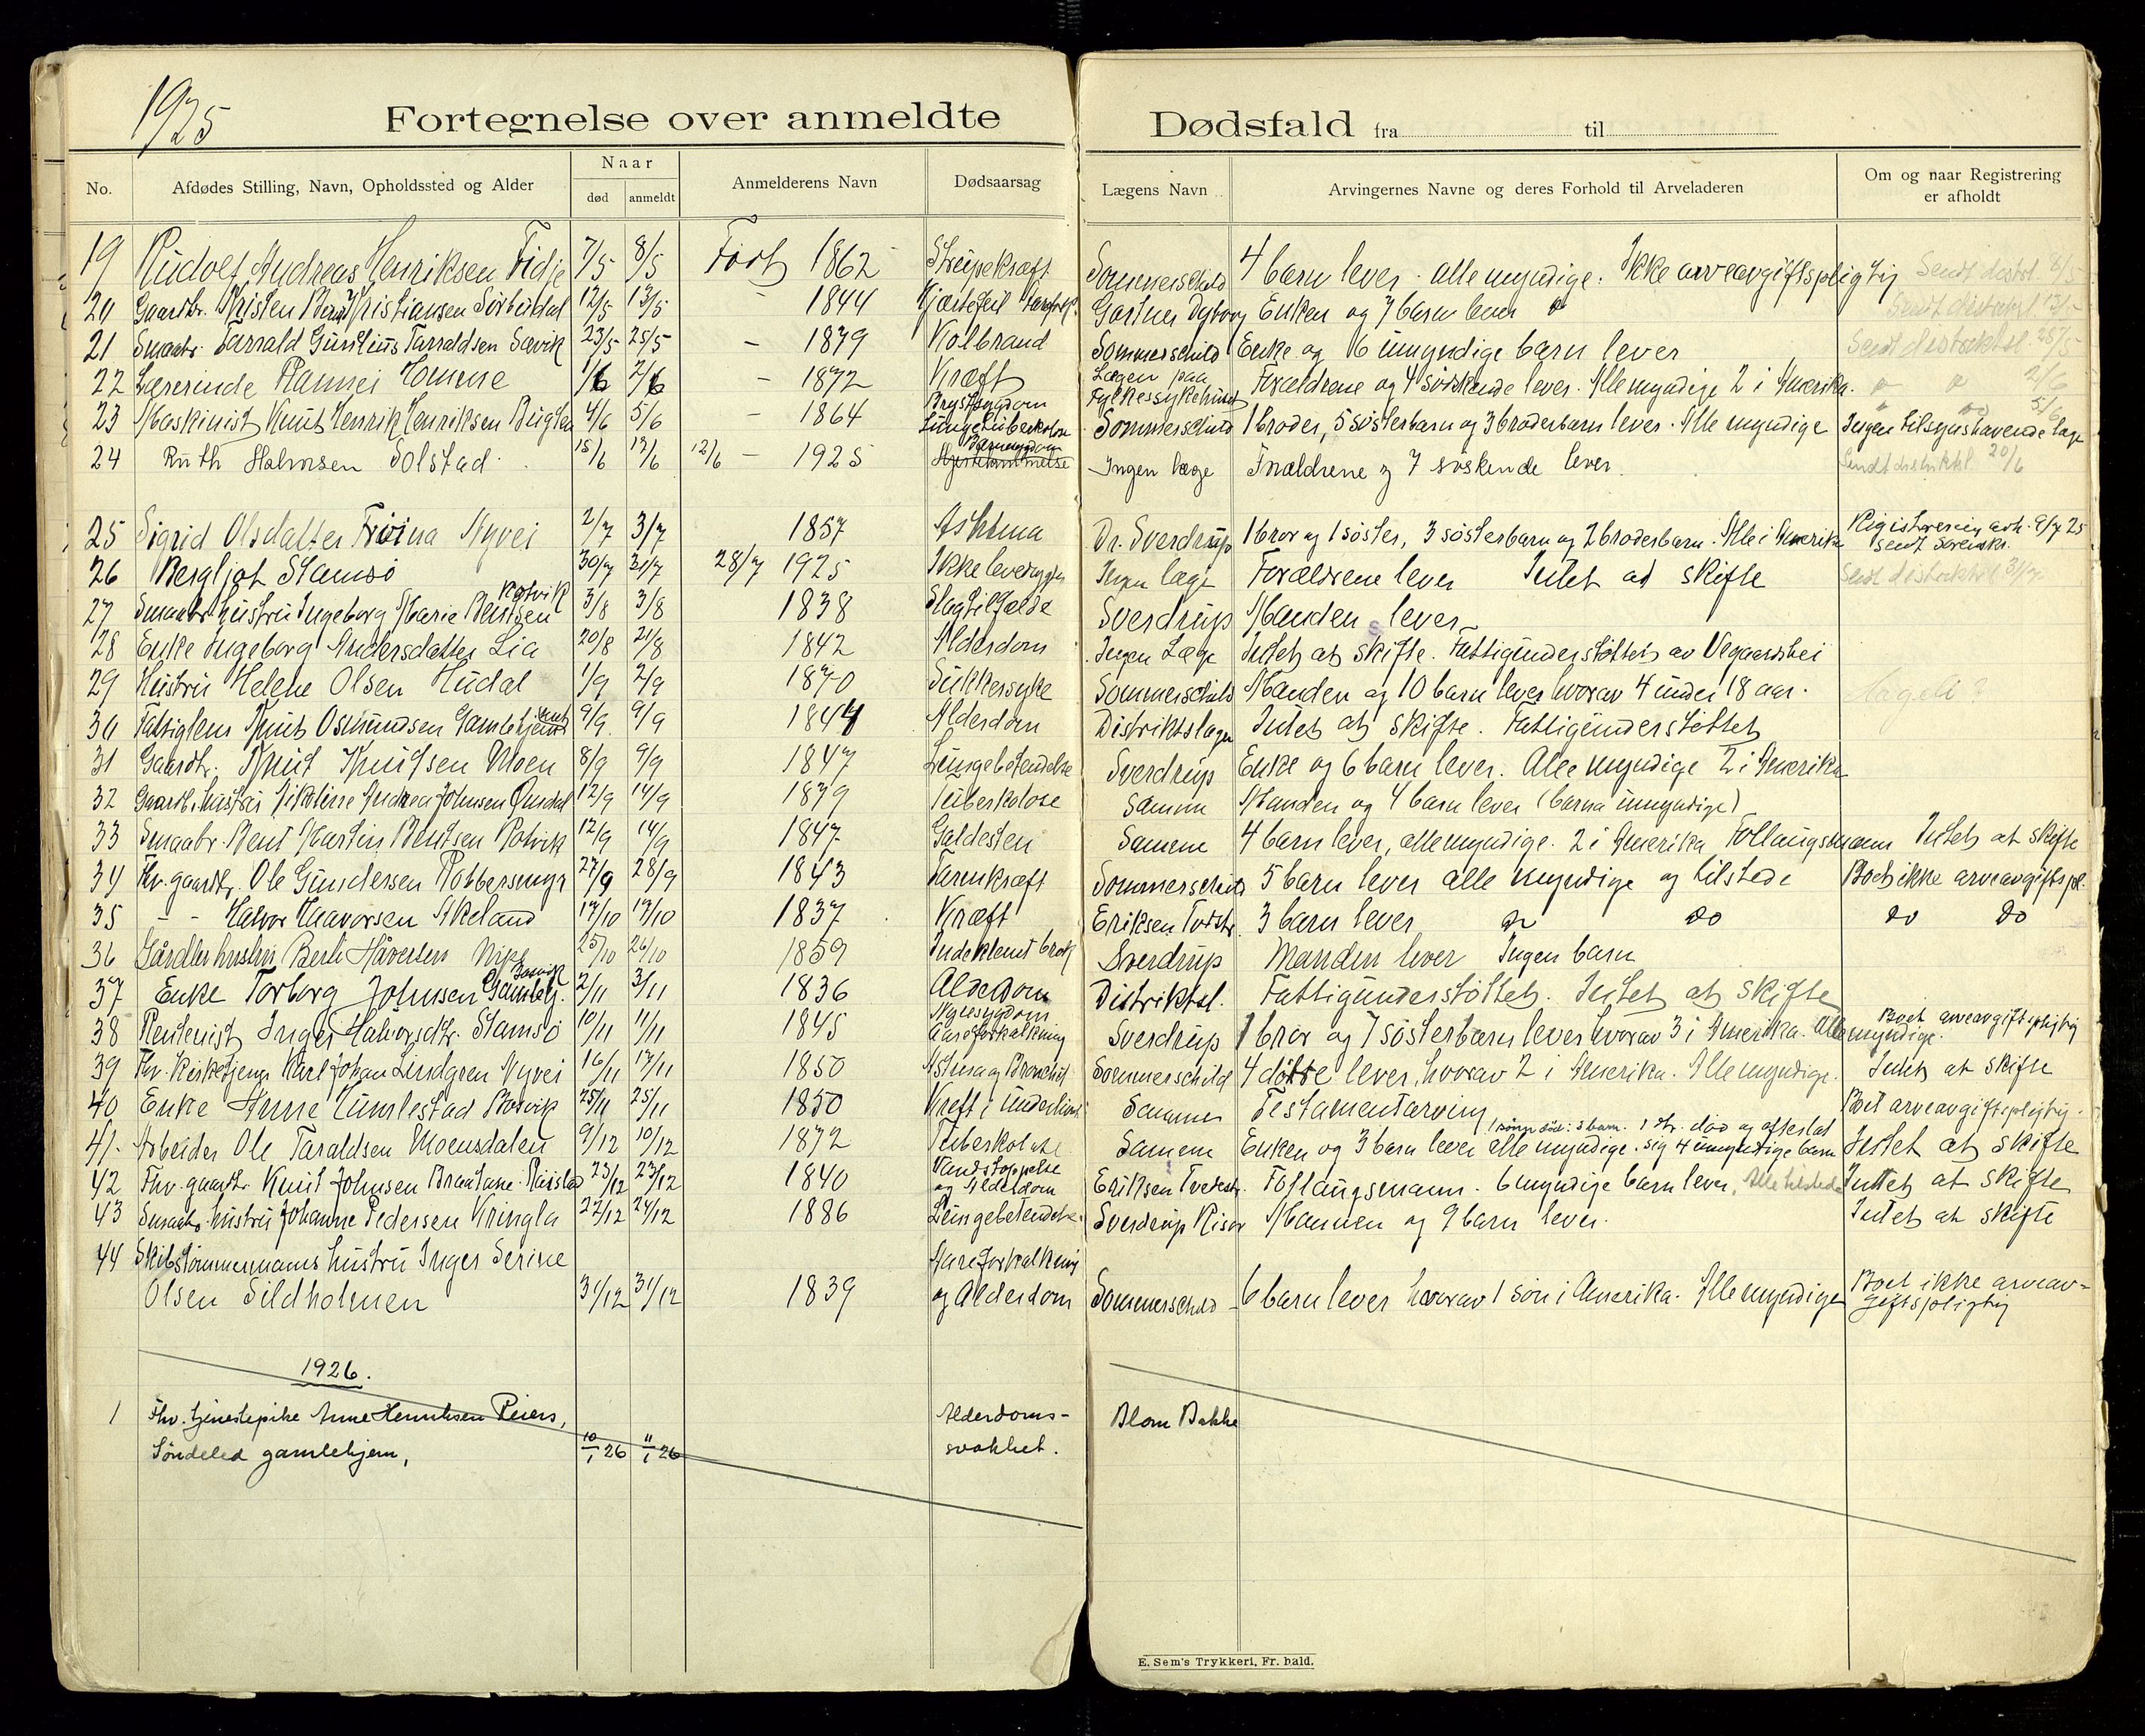 1925
Fortegnelse over anmeldte Dødsfald fra til
No. Afdødes Stilling, Navn, Opholdssted og Alder Naar død anmeldt Anmelderens Navn Dødsaarsag Lægens Navn Arvingernes Navne og deres Forhold til Arveladeren Om og naar Registrering er afholdt
19 Rudolf Andreas Henriksen Fidje 7/5 8/5 Født 1862 Strupekræft Sommerschild 4 barn lever. alle myndige. Ikke arveavgiftspligtig Sendt distrl. 8/5
20 Gaardbr. Kristen Bernt Kristiansen Sørbudal 12/5 13/5 - 1844 Hjærtefeil Gastner Dyborg Enken og 7 barn lever Sendt distriktsl. 13/5
21 Smaabr. Tarrald Gunlius Tarraldsen Savik 23/5 25/5 - 1879 Kolbrand Sommerschild Enke og 6 umyndige barn lever Sendt distriktsl. 25/5
22 Lærerinde Rannei Homme 1/6 2/6 - 1872 Kræft Lægen paa Fylkessykehuset Forældrene og 4 søskende lever. Alle myndige 2 i Amerika. 2/6
23 Maskinist Knut Henrik Henriksen 4/6 5/6 - 1864 Brystsygdom Lungetuberkulose Sommerschild 1 broder, 5 søsterbarn og 3 broderbarn lever. Alle myndige 5/6 Ingen tilsynshavende læge
24 Ruth Halvorsen Solstad 15/6 17/6 12/6 - 1925 Barnesygdom Hjertelammelse Ingen læge Forældrene og 7 søskende lever. Sendt distriktsl. 20/6
25 Sigrid Olsdatter Frøina Nyvei 2/7 3/7 1857 Asthma Dr. Sverdrup 1 bror og 1 søster, 3 søsterbarn og 2 broderbarn. Alle i Amerika Registrering avh. 9/7 25 sendt Sorenskr.
26 Bergljot Stamsø 30/7 31/7 28/7 1925 Ikke levedygtig Ingen læge Forældrene lever Intet at skifte Sendt distriktsl. 31/7
27 Smaabr. hustru Ingeborg Marie Bentsen Rotvik 3/8 3/8 1838 Slagtilfælde Sverdrup Manden lever
28 Enke Ingeborg Andersdatter Lia 20/8 21/8 1842 Alderdom Ingen Læge Intet at skifte. Fattigunderstøttet av Vegaardshei
29 Hustru Helene Olsen Hudal 1/9 2/9 1870 Sukkersyke Sommerschild Manden og 10 barn lever hvorav 4 under 18 aar.
30 Fattiglem Knut Osmundsen Gamlehjemmet 9/9 9/9 1844 Alderdom Distriktslægen Intet at skifte. Fattigunderstøttet
31 Gaardbr. Knut Knutsen Moen 8/9 9/9 1847 Lungebetendelse Sverdrup Enke og 6 barn lever. Alle myndige 2 i Amerika
32 Gaardb. hustru Nikoline Andrea Johnsen 12/9 14/9 1879 Tuberkolose Samme Manden og 4 barn lever (barna umyndige)
33 Smaabr. Bent Martin Bentsen Rotvik 12/9 14/9 1847 Galdesten Samme 4 barn lever, alle myndige. 2 i Amerika Follaugsmann Intet at skifte
34 Fhv. gaardbr. Ole Gundersen Robbersmyr 27/9 28/9 1843 Tarmkræft Sommerschild 5 barn lever alle myndige og tilstede Boet ikke arveavgiftspl.
35 - - Halvor Haavorsen Akeland 17/10 17/10 1837 Kræft Eriksen Tvdstr. 3 barn lever do do do do
36 Gårdbr hustru Berte Håversen 25/10 26/10 1859 Indeklemt brok Sverdrup Manden lever Ingen barn
37 Enke Torborg Johnsen Gamleh. 2/11 3/11 1836 Alderdom Distriktsl. Fattigunderstøttet. Intet at skifte
38 Rentenist Inger Halvorsdtr. Stamsø 10/11 11/11 1845 Nyresygdom Aareforkalkning Sverdrup 1 bror og 7 søsterbarn lever hvorav 3 i Amerika. Alle myndige. Boet arveavgiftspligtig
39 Fhv. Kirketjener Karl Johan Lindgren Nyvei 16/11 17/11 1850 Astma og Bronchit Sommerschild 4 døtre lever, hvorav 2 i Amerika. Alle myndige. Intet at skifte
40 Enke Anne Lunlestad 25/11 25/11 1850 Kreft i Underlivet Samme Testamentarving Boet arveavgiftspligtig.
41. Arbeider Ole Taraldsen Moensdalen 9/12 10/12 1872 Tuberkolose Samme Enken og 3 barn lever alle myndige. 1 sønn død: 3 barn. 1 dtr. død og efterlat sig 4 umyndige barn Intet at skifte
42 Fhv. gaardbr. Knut Johnsen Brautane 23/12 23/12 1840 Vandstoppelse og Alderdom Eriksen Tvedestr. Follaugsmann. 6 myndige barn lever. Alle tilstede Intet at skifte
43 Smaabr. hustru Johanne Pedersen Kringla 22/12 24/12 1886 Lungebetendelse Sverdrup Risør Mannen og 9 barn lever. Intet at skifte
44 Skibstømmermanns hustru Inger Serine
Olsen Sildholmen 31/12 31/12 1839 Aareforkalkning og Alderdom Sommerschild 6 barn lever hvorav 1 søn i Amerika. Alle myndige Boet ikke arveavgiftspligtig
1926.
1 Fhv. tjenestepike Anne Henriksen Peiers, Alderdoms- Blom Bakke
Søndeled gamlehjem, 10/1 26 11/1 26 svakhet.
E. Sem's Trykkeri, Fr. hald.